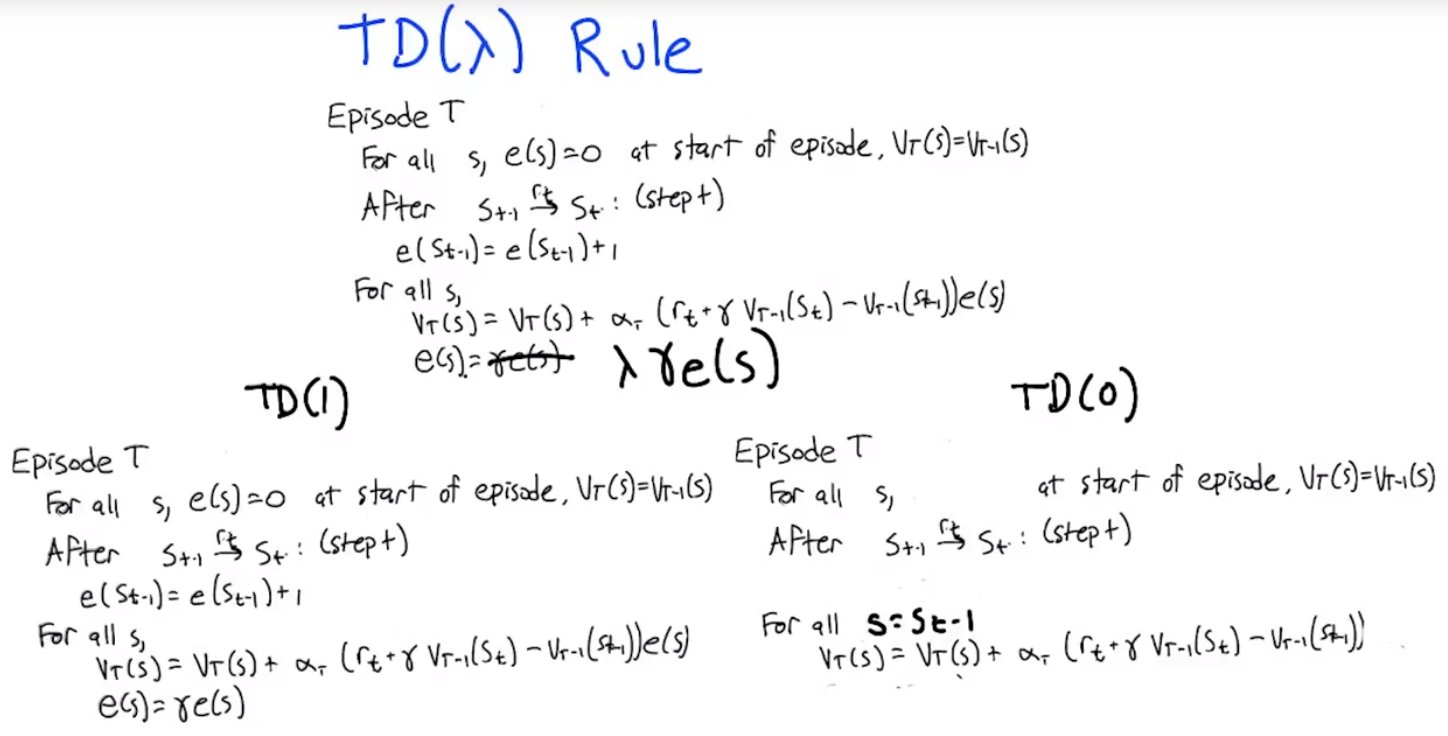 TD(λ) Rule
Episode T
For all s, e(s)=0 at start of episode, V_T(s)=V_{T-1}(s)
After S_{t-1} →^{r_t} S_t: (step t)
e(S_{t-1})=e(S_{t-1})+1
For all s,
V_T(s)=V_T(s)+α_T(r_t+γV_{T-1}(S_t)-V_{T-1}(S_{t-1}))e(s)
e(s)=~~γe(s)~~ λγe(s)
TD(1)
Episode T
For all s, e(s)=0 at start of episode, V_T(s)=V_{T-1}(s)
After S_{t-1} →^{r_t} S_t: (step t)
e(S_{t-1})=e(S_{t-1})+1
For all s,
V_T(s)=V_T(s)+α_T(r_t+γV_{T-1}(S_t)-V_{T-1}(S_{t-1}))e(s)
e(s)=γe(s)
TD(0)
Episode T
For all s, at start of episode, V_T(s)=V_{T-1}(s)
After S_{t-1} →^{r_t} S_t: (step t)
For all s=S_{t-1}
V_T(s)=V_T(s)+α_T(r_t+γV_{T-1}(S_t)-V_{T-1}(S_{t-1}))